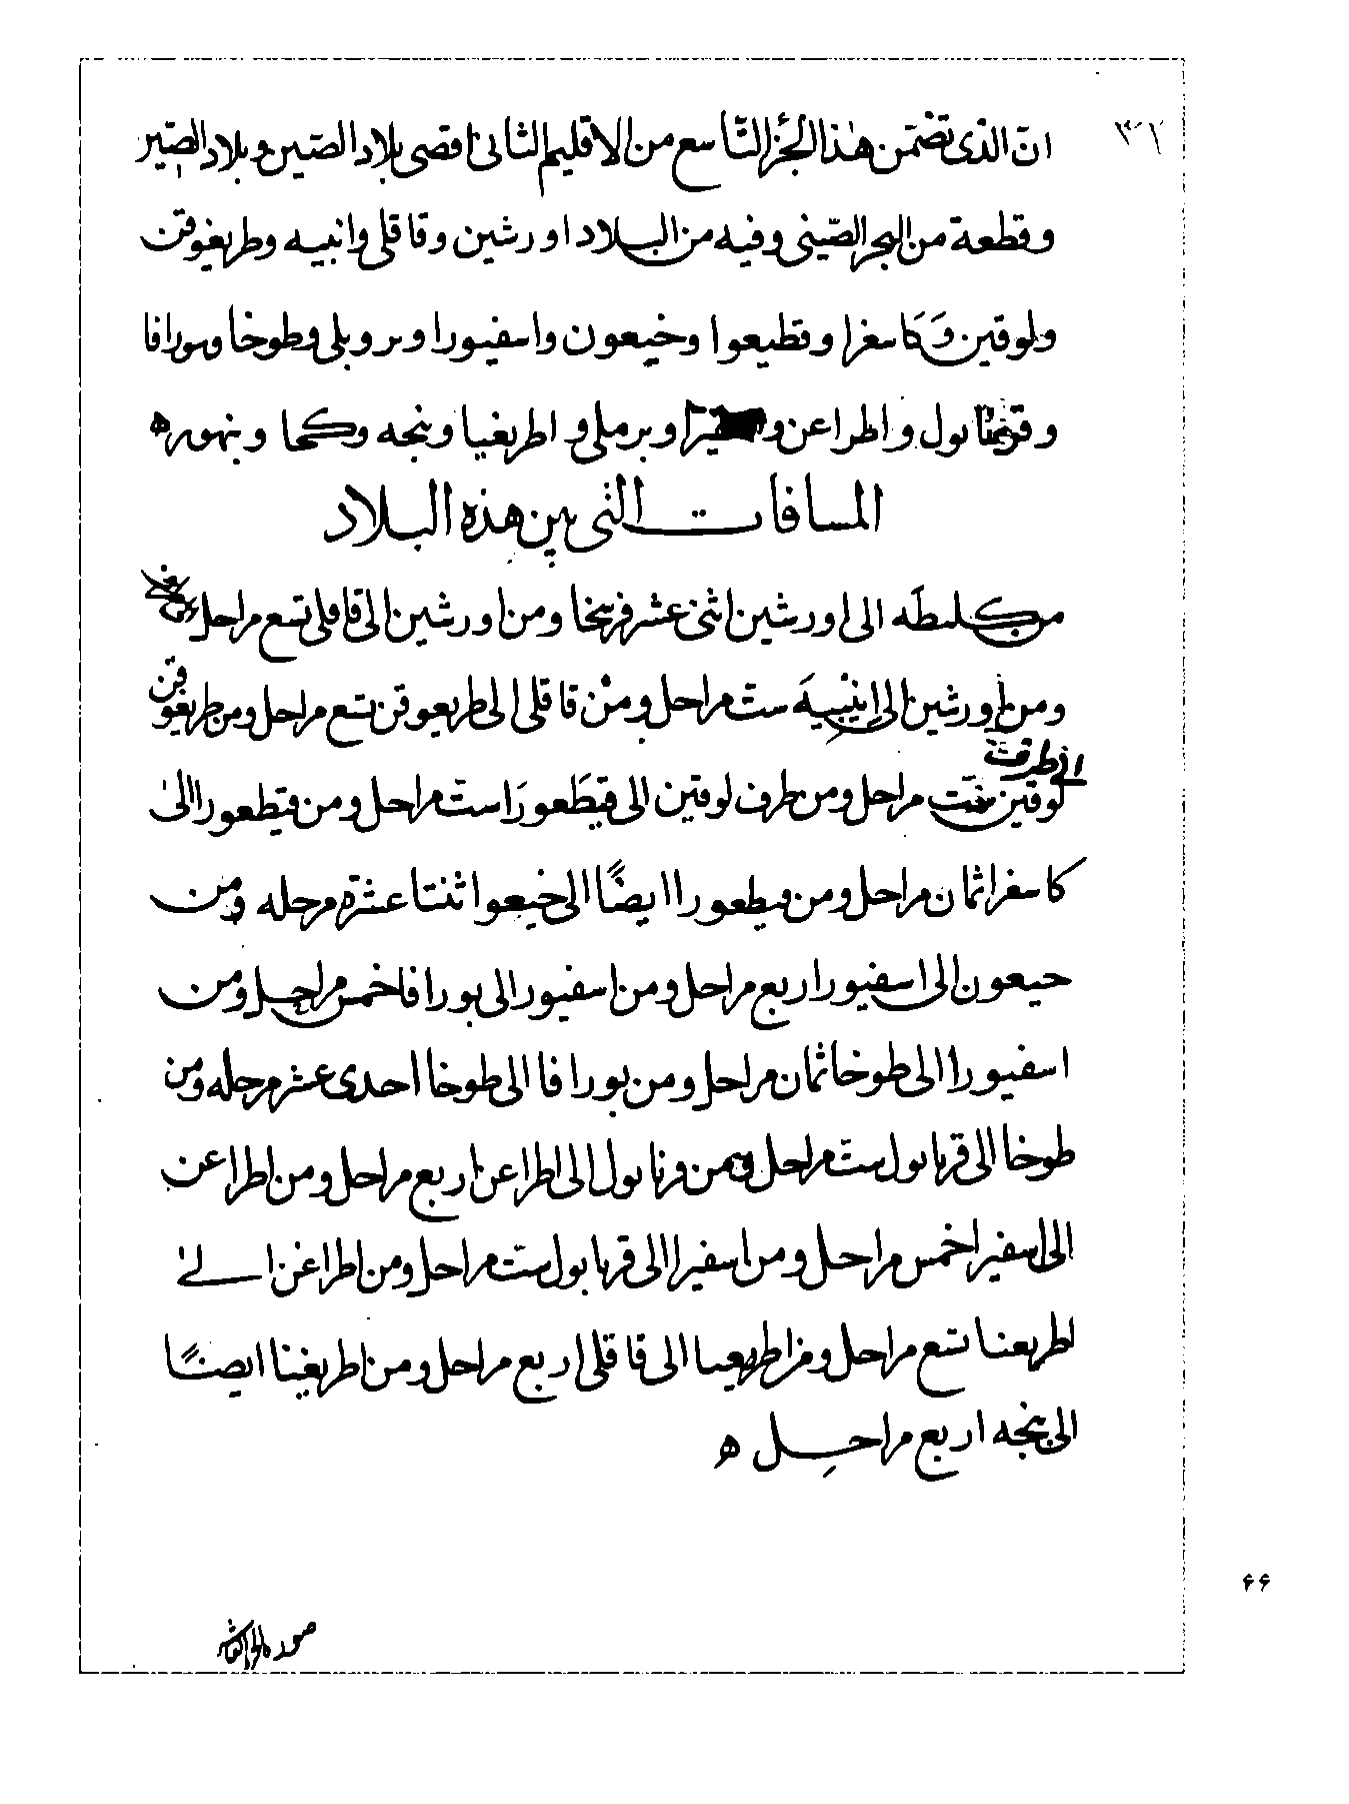 ان الذى تضمن هذا الجزء التاسع من الاقليم الثانى اقصى بلاد الصين وبلاد الصير
وقطعة من البحر الصينى وفيه من البلاد اورشين وقاقلى وانبيه وطريغوقن
ولوقين وكاسغرا وقطيعوا وخيعون واسفيورا وبروبلى وطوخا وبورافا
بول واطراعن وبرملى واطريغيا وبنجه وكحما وبنهوره
المسافات التى بين هذه البلاد
من كلىطه الى اورشين اثنى عشر فرسخا ومن اورشين الى قاقلى تسع مراحل
ومن اورشين الى انبيه ست مراحل ومن قاقلى الى طريعوقن تسع مراحل ومن طريغوقن
الى طرف
لوقين ست مراحل ومن طرف لوقين الى قيطعورا ست مراحل ومن قيطعورا الى
كاسغرا ثمان مراحل ومن قيطعورا ايضًا الى خيعوا ثنتا عشرة مرحله ومن
حيعون الى اسفيورا اربع مراحل ومن اسفيورا الى بورافا خمس مراحل ومن
اسفيورا الى طوخا ثمان مراحل ومن بورافا الى طوخا احدى عشر مرحله ومن
طوخا الى قرنابول ست مراحل ومن قرنابول الى اطراعن اربع مراحل ومن اطراعن
الى اسفيرا خمس مراحل ومن اسفيرا الى قرنابول ست مراحل ومن اطراغن الى
اطريعنا تسع مراحل ومن اطريعنا الى قاقلى اربع مراحل ومن اطريغنا ايضًا
الى بنجه اربع مراحل ه
۶۶